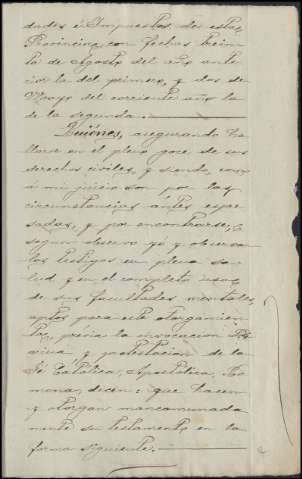 dades é Impuestos de esta
Provincia, con fechas trein-
ta de Agosto del año ante
rior la del primero, y dos de
Mayo del corriente año la
de la segunda.
Quiénes, asegurando ha
llarse en el pleno goce de sus
derechos civiles, y siendo, como
á mi juicio son por las
circunstancias antes espre
sadas, y por encontrarse,
segun observo yó y observan
los testigos en plena sa
lud y en el completo uso
de sus facultades mentales,
aptos para este otorgamien
to, prévia la invocacion Di-
vina, y protestacion de la
Fé Católica, Apostólica, Ro
mana, dicen: que hacen
y otorgan mancomunada
mente su testamento en la
forma siguiente.